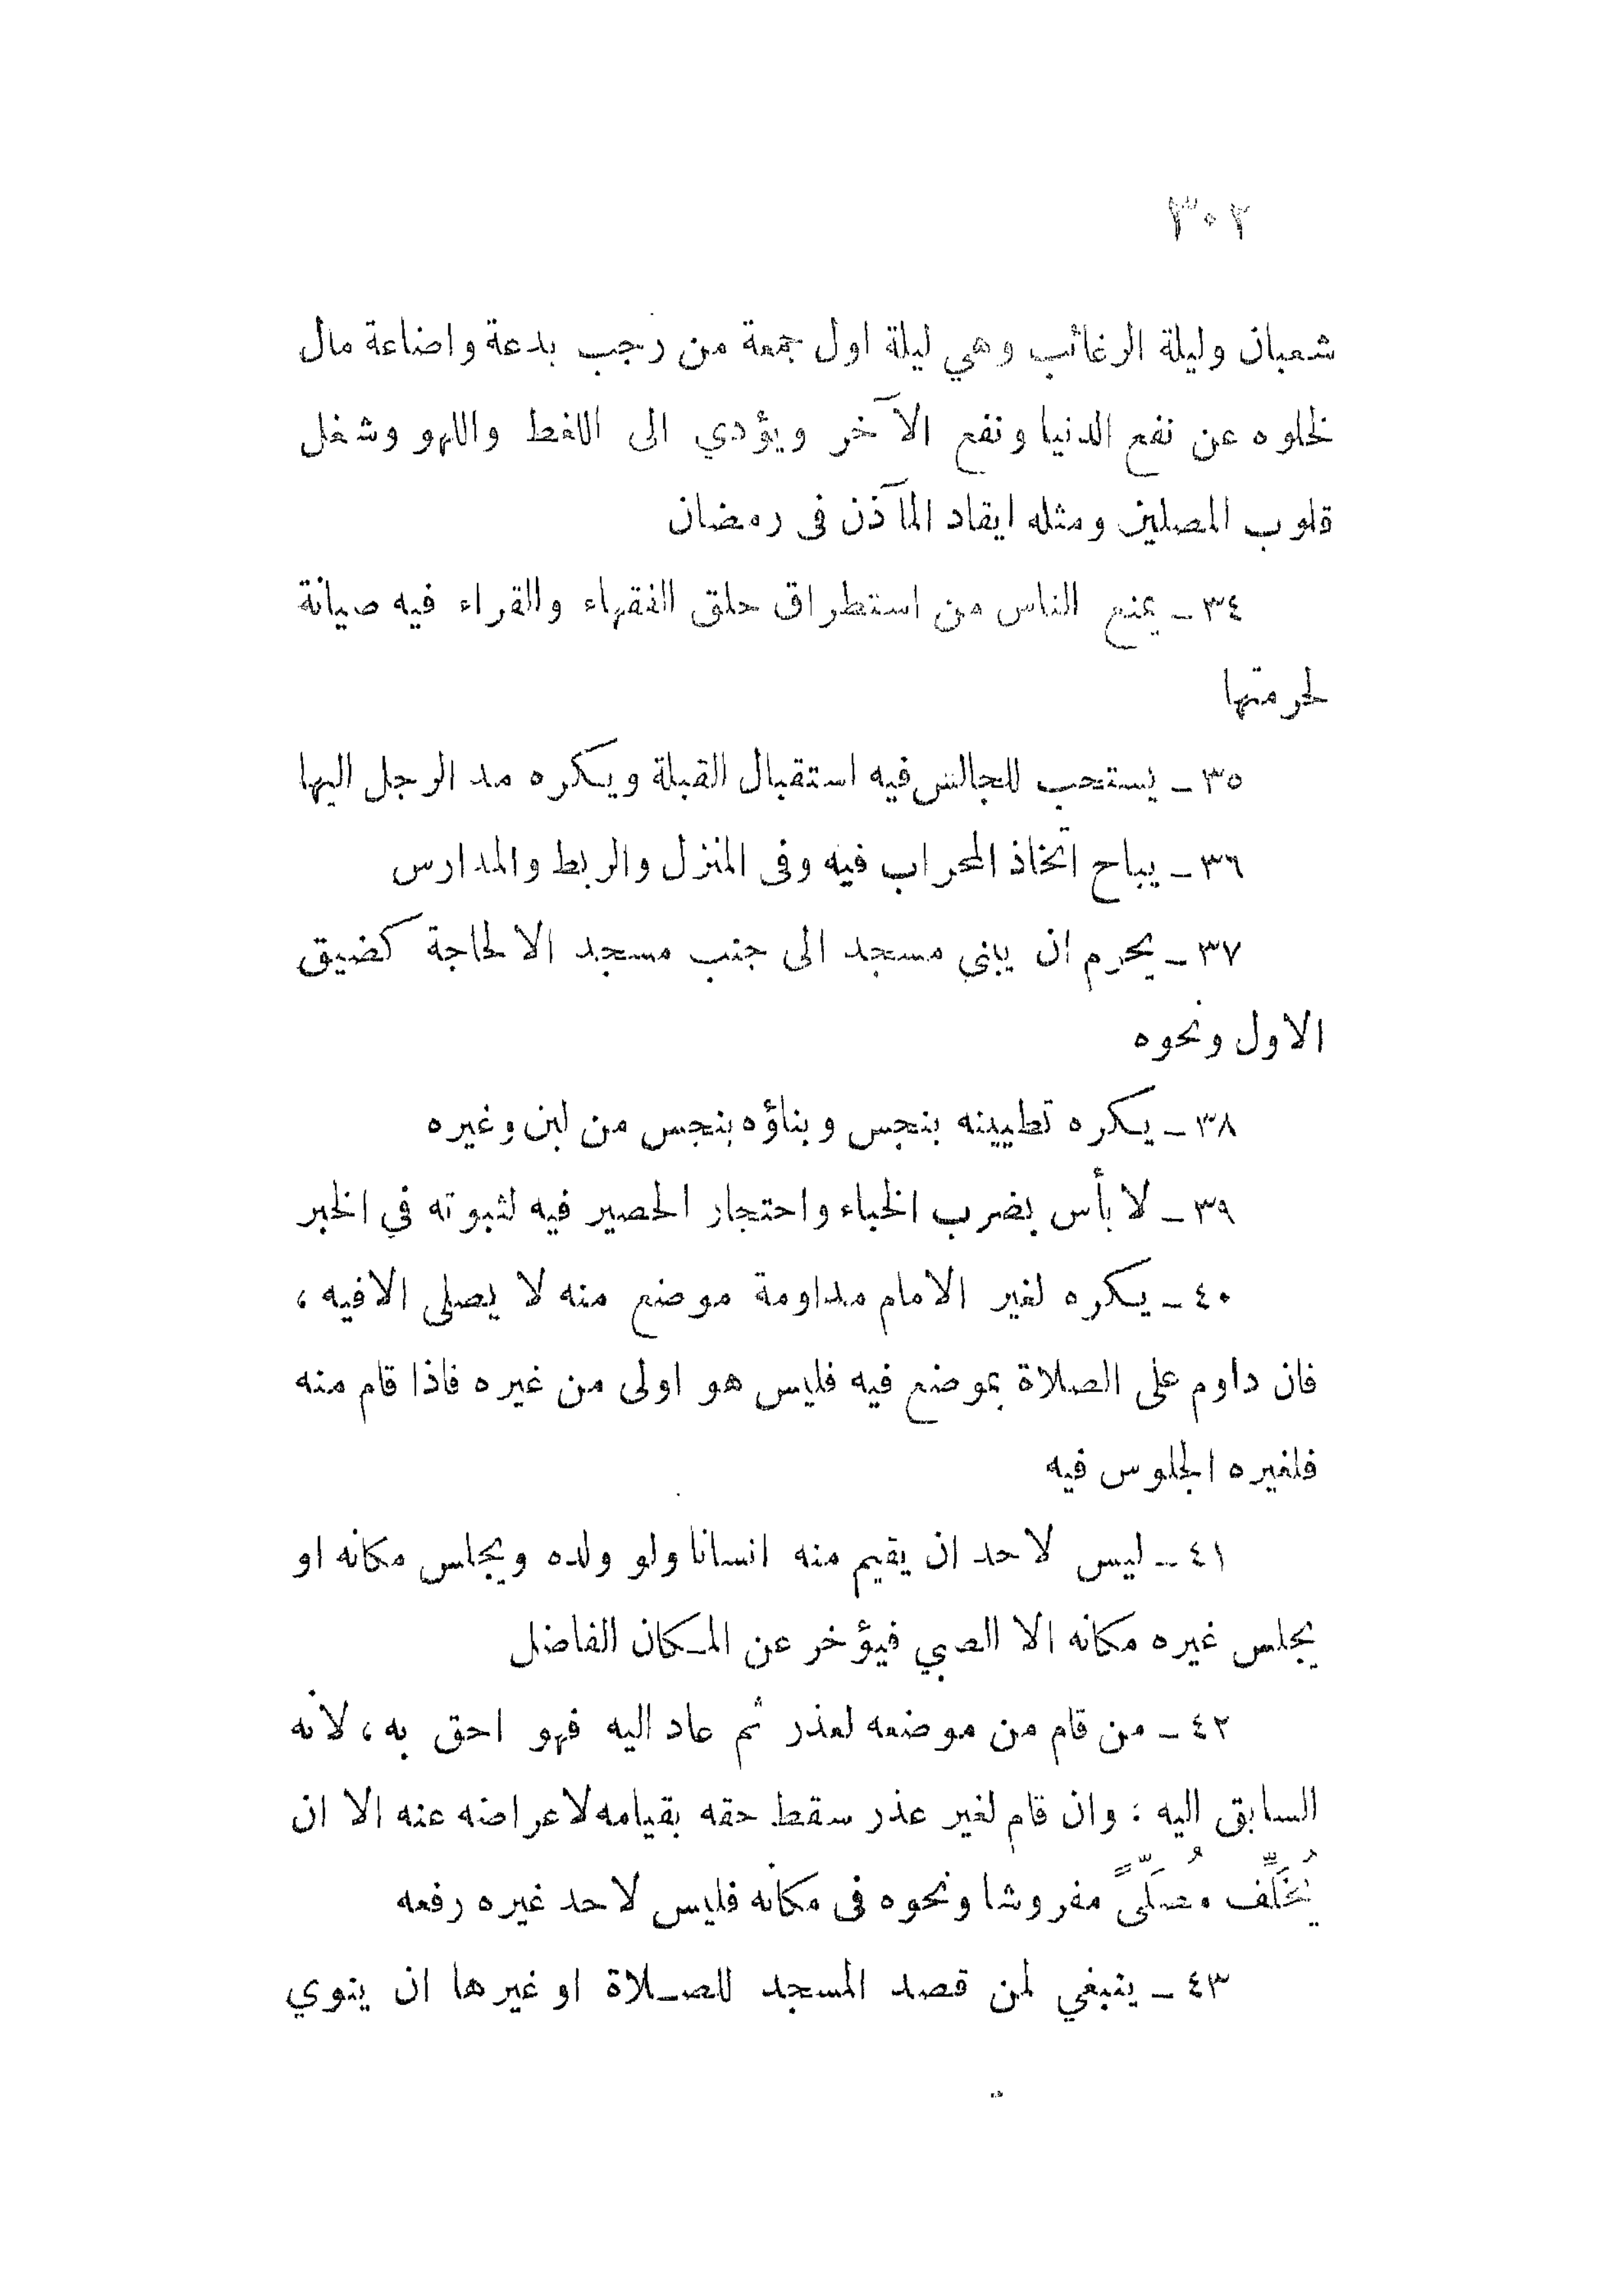 ٣٠٢
شعبان وليلة الرغائب وهي ليلة اول جمعة من رجب بدعة واضاعة مال
لخلوه عن نفع الدنيا ونفع الآخر ويؤدي الى اللغط واللهو وشغل
قلوب المصلين ومثله ايقاد المآذن فى رمضان
٣٤ ـ يمنع الناس من استطراق حلق الفقهاء والقراء فيه صيانة
لحرمتها
٣٥ ـ يستحب للجالس فيه استقبال القبلة ويكره مد الرجل اليها
٣٦ ـ يباح اتخاذ المحراب فيه وفى المنزل والربط والمدارس
٣٧ ـ يحرم ان يبنى مسجد الى جنب مسجد الا لحاجة كضيق
الاول ونحوه
٣٨ ـ يكره تطيينه بنجس وبناؤه بنجس من لبن وغيره
٣٩ ـ لا بأس بضرب الخباء واحتجار الحصير فيه لثبوته في الخبر
٤٠ ـ يكره لغير الامام مداومة موضع منه لا يصلى الا فيه ،
فان داوم على الصلاة بموضع فيه فليس هو اولى من غيره فاذا قام منه
فلغيره الجلوس فيه
٤١ ـ ليس لاحد ان يقيم منه انسانا ولو ولده ويجلس مكانه او
يجلس غيره مكانه الا الصبي فيؤخر عن المكان الفاضل
٤٢ ـ من قام من موضعه لعذر ثم عاد اليه فهو احق به ، لانه
السابق اليه : وان قام لغير عذر سقط حقه بقيامه لاعراضه عنه الا ان
يُخَلِّف مُصَلَّىً مفروشا ونحوه فى مكانه فليس لاحد غيره رفعه
٤٣ ـ ينبغي لمن قصد المسجد للصلاة او غيرها ان ينوي